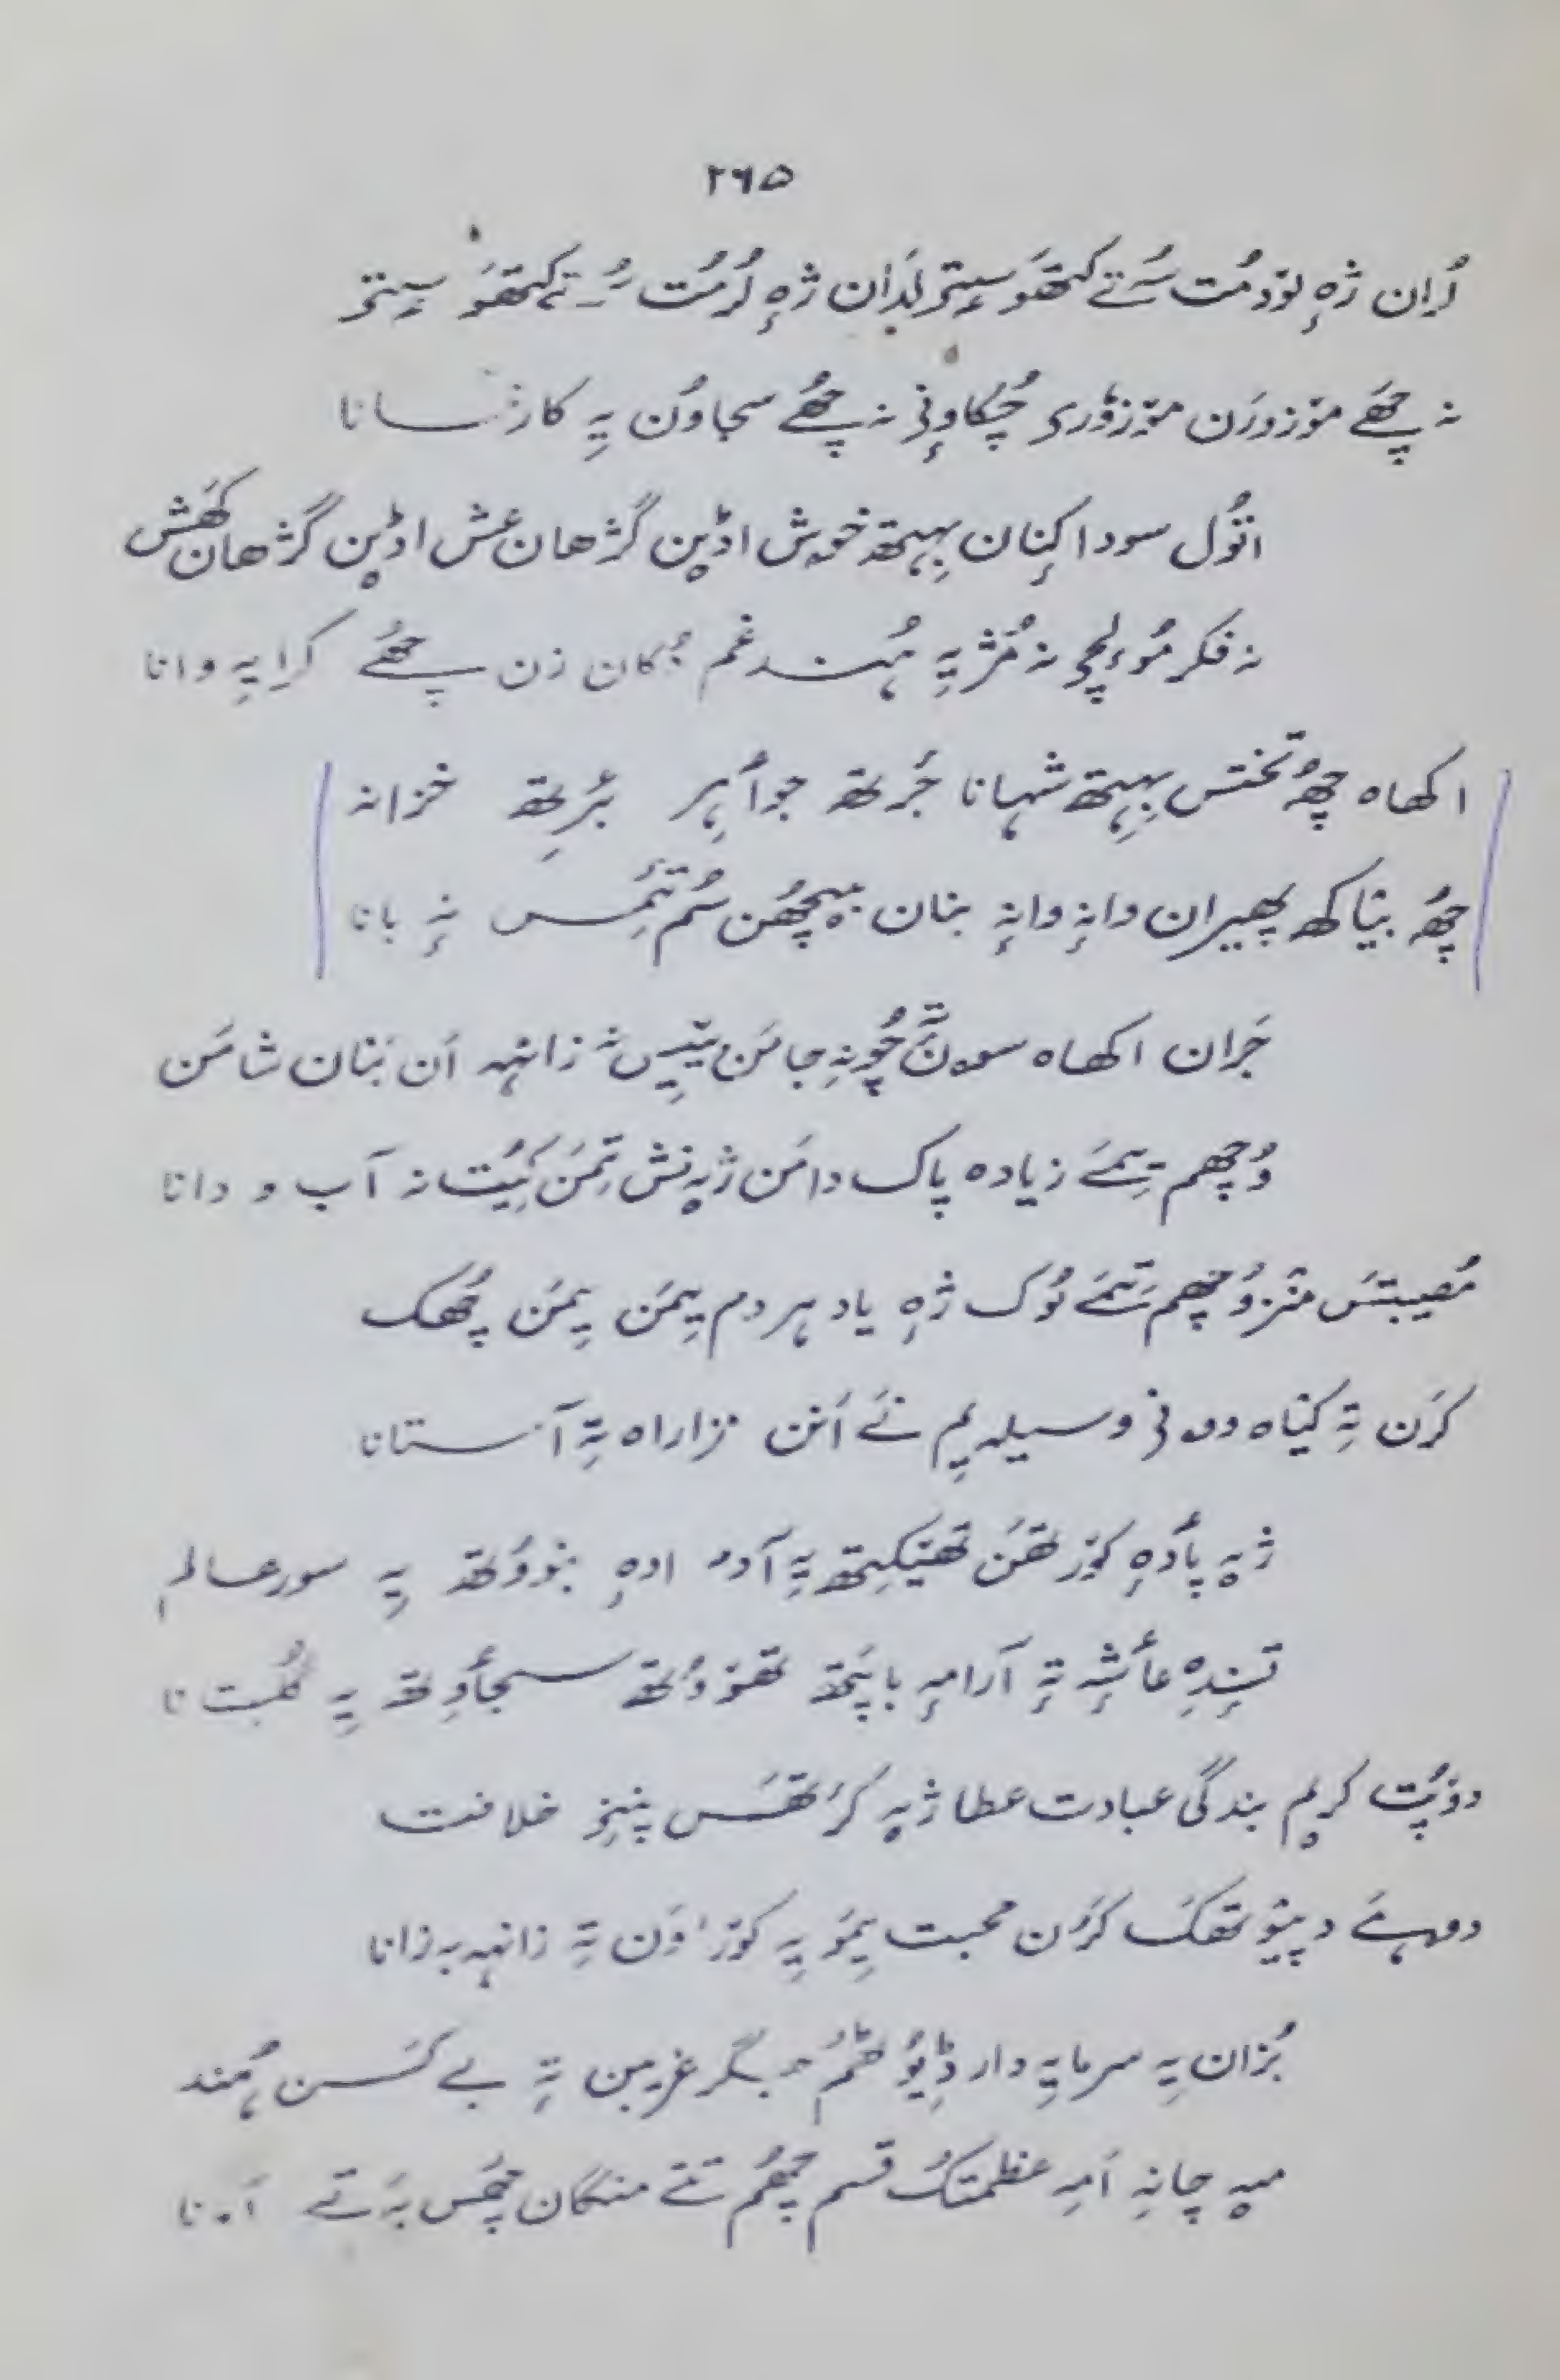 ۲۶۵
لُران ژٕہ لوٚدمُت سُتے کتھَو سیٖتۍ لدَان ژٕہ لُرمُت سُتے کتھَو سیٖتۍ
نہ چھَے موٚزوٗرَن موٚزوٗری چُکاوٕنۍ نہ چھُے سجاوُن یہِ کارژسانا
اتُول سودا کِنان بہِتھ خوش اڈٕین گژھان عش اڈٕین گژھان کھَش
نہ فکر موٗلچ نہ مُژیہِ ہُند غم دُکان زن چھُے کرایہِ وانا
اکھاہ چھُ تختس بہِتھ شہانا جٔرتھ جوأہِر بٔرِتھ خزانہ
چھُ بیٛاکھ پھیران وانہٕ وانہٕ بنان بیٚچھُن سُم تٔمِس نہٕ بانا
جَران اکھاہ سونٛ چُونہِ جامَن یِیِس نہ زانٛہہ اَن بَنان شامَن
وُچھِم تِمَے زیادہ پاک دامَن ژیہٕ نِش تِمَن کیُت نہ آب و دانا
مُصیبتَس منٛز وُچھِم تِمَے لُوک ژٕہ یاد ہردم یِمَن یِمَن چھُک
کرَن تہِ کیٛاہ وونۍ وسیلہ یِم نَے اَنَن نزاراہ تہِ آستانا
ژیہٕ پأدٕہ کوٚرتھَن تھنیکِتھ یہِ آدم ادٕہ بنوٚوُتھ یہِ سورعالم
تسٕندِہ عأشہٕ تہٕ آرامہٕ باپَتھ تھوٚوُتھ سجأوِتھ یہِ گُلستانا
دوٚپُت کریٖم بندگی عبادت عطا ژیہٕ کٔرتھَس پنٕنۍ خلافت
دوہَے دپیوٚتھَک کرَن محبت یِمَو یہِ کوٚر، وَن تہِ زانٛہہ بہ زانا
بُزان یہِ سرمایہِ دار ڈیُوٗٹھُم جگر غریبن تہِ بے کَسن ہُند
میہٕ چانہِ اَمہِ عظمتُک قسم چھُم تَتے منگان چھُس بہَ تے اَمانا